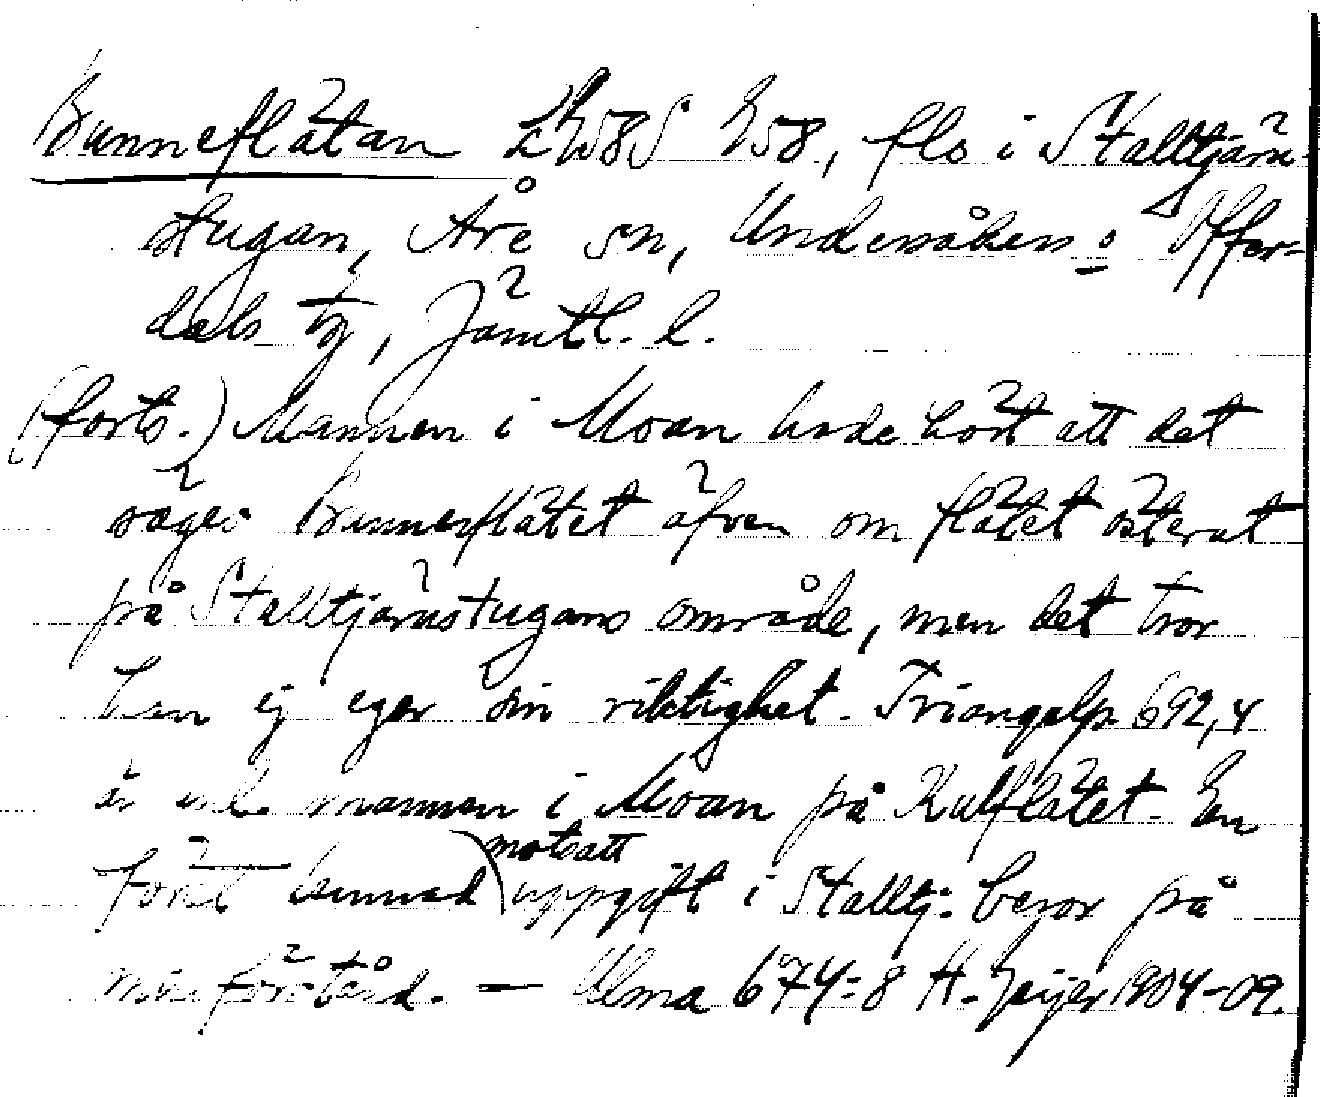 Bunneflätan flo i Stalltjärn-
stugan, Åre sn, Undersåkers o Offer-
dals tg, Jämtl. l.
(forts.) Mannen i Moan hade hört att det
säges Bunnerflätet äfven om flätet österut
på Stalltjärnstugans område, men det tror
han ej eger sin riktighet. Triangelp. 692,4
är enl. mannen i Moan på Kulflätet. En
motsatt
förut lämnad uppgift i Stalltj. beror på
missförstånd. — Ulma 674:8 H. Geijer 1904-09.